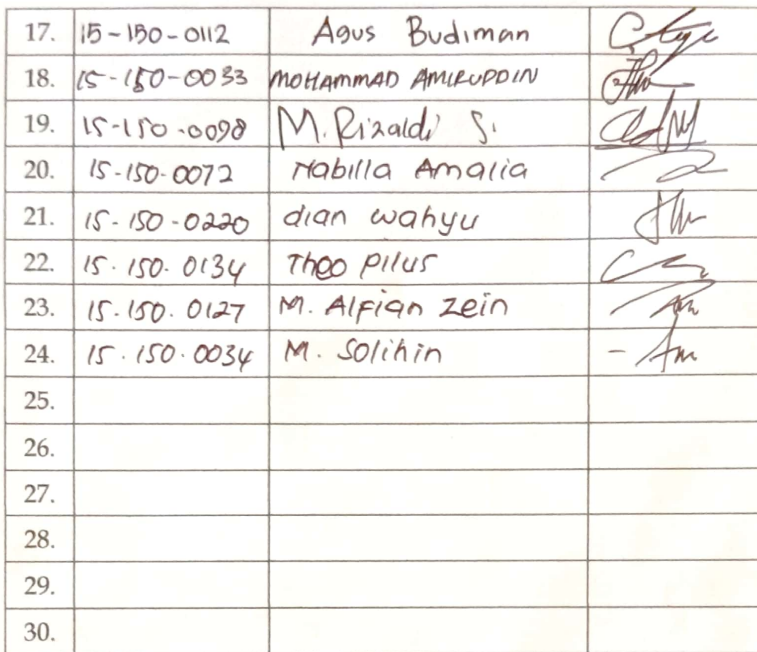 17. 15-150-0112 Agus Budiman
18. 15-150-0033 MOHAMMAD AMIRUDDIN
19. 15-150-0098 M. Rizaldi S.
20. 15-150-0072 Nabilla Amalia
21. 15-150-0220 dian wahyu
22. 15.150.0134 Theo Pilus
23. 15.150.0127 M. Alfian Zein
24. 15.150.0034 M. Solihin
25.
26.
27.
28.
29.
30.